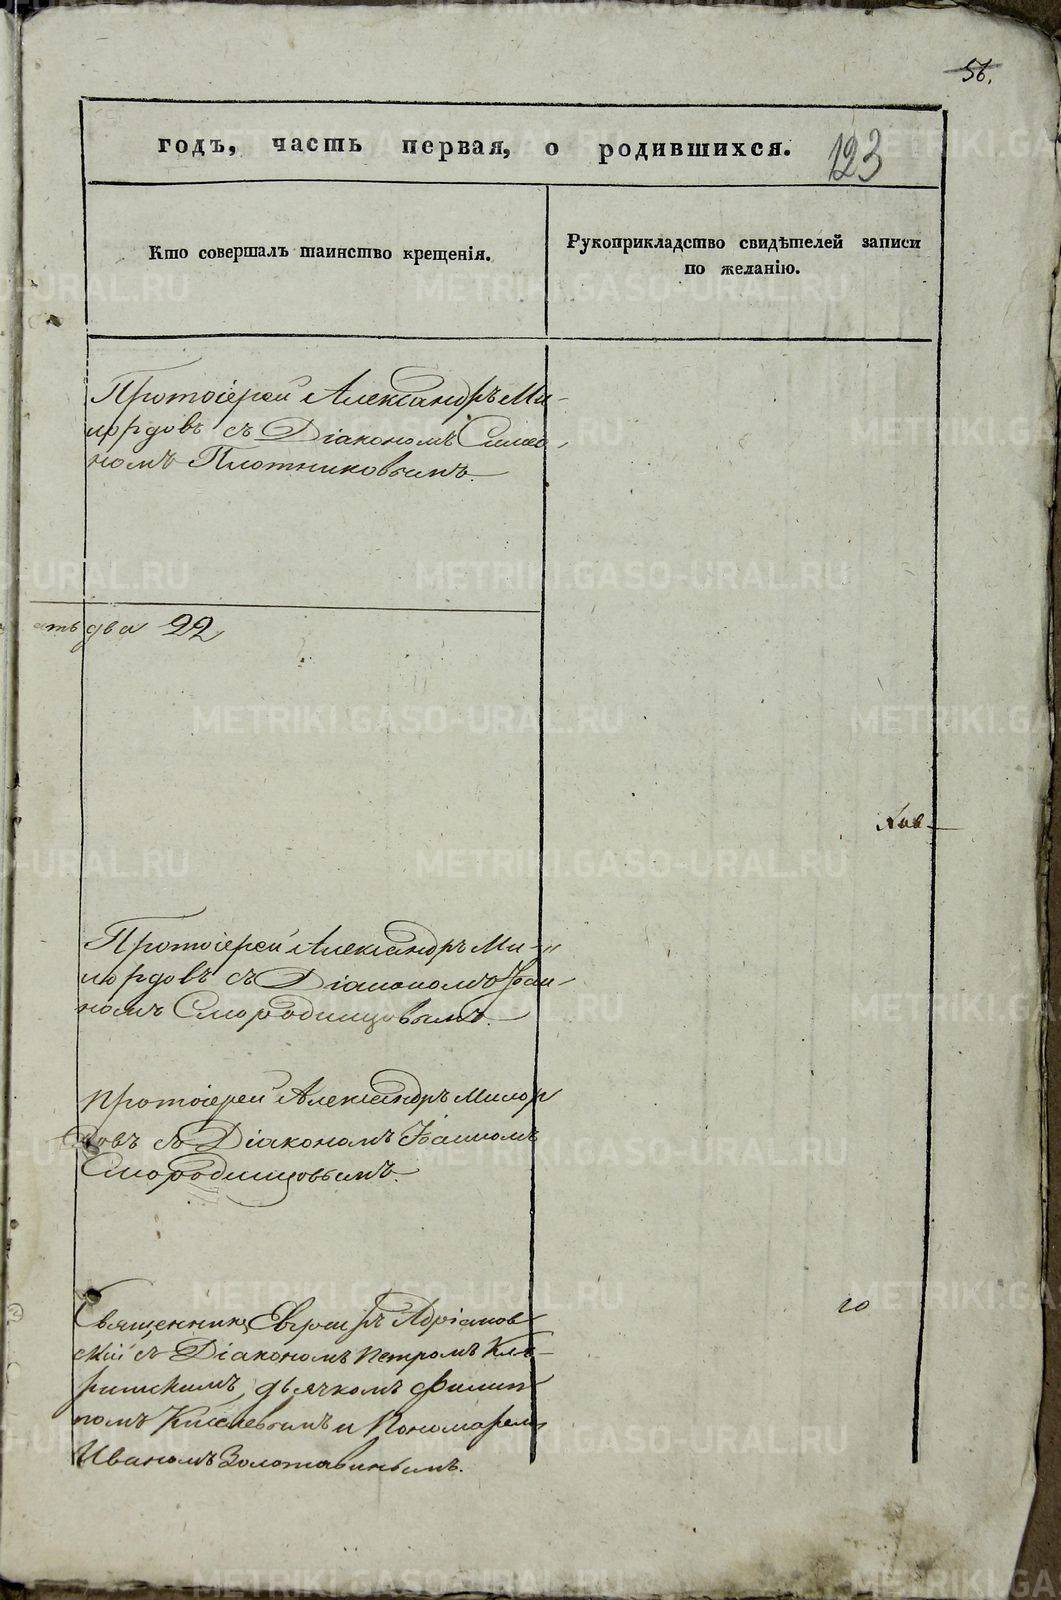 56.
годъ, часть первая, о родившихся. 123
Кто совершалъ таинство крещенія.
Рукоприкладство свидѣтелей записи
по желанію.
Протоіерей Александръ Ми-
лордовъ съ Діакономъ Симео-
номъ Плотниковымъ.
ать два 22
Протоіерей Александръ Ми-
лордовъ съ Діакономъ
номъ Смородинцовымъ.
протоіерей Александръ Милор
довъ съ Діакономъ
Смородинцовымъ.
Священникъ Адріанов
скій съ Діакономъ Петромъ
дьячкомъ Филип
помъ Киселевымъ и Пономаремъ
Иваномъ Золотавинымъ.
METRIKI.GASO-URAL.RU